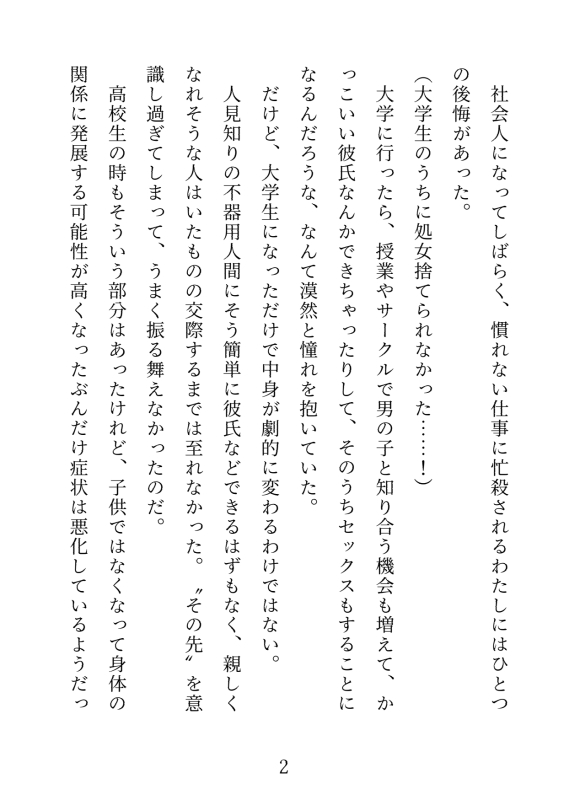 社会人になってしばらく、慣れない仕事に忙殺されるわたしにはひとつ
の後悔があった。
(大学生のうちに処女捨てられなかった……！)
大学に行ったら、授業やサークルで男の子と知り合う機会も増えて、か
っこいい彼氏なんかできちゃったりして、そのうちセックスもすることに
なるんだろうな、なんて漠然と憧れを抱いていた。
だけど、大学生になっただけで中身が劇的に変わるわけではない。
人見知りの不器用人間にそう簡単に彼氏などできるはずもなく、親しく
なれそうな人はいたものの交際するまでは至れなかった。〝その先〟を意
識し過ぎてしまって、うまく振る舞えなかったのだ。
高校生の時もそういう部分はあったけれど、子供ではなくなって身体の
関係に発展する可能性が高くなったぶんだけ症状は悪化しているようだっ
2